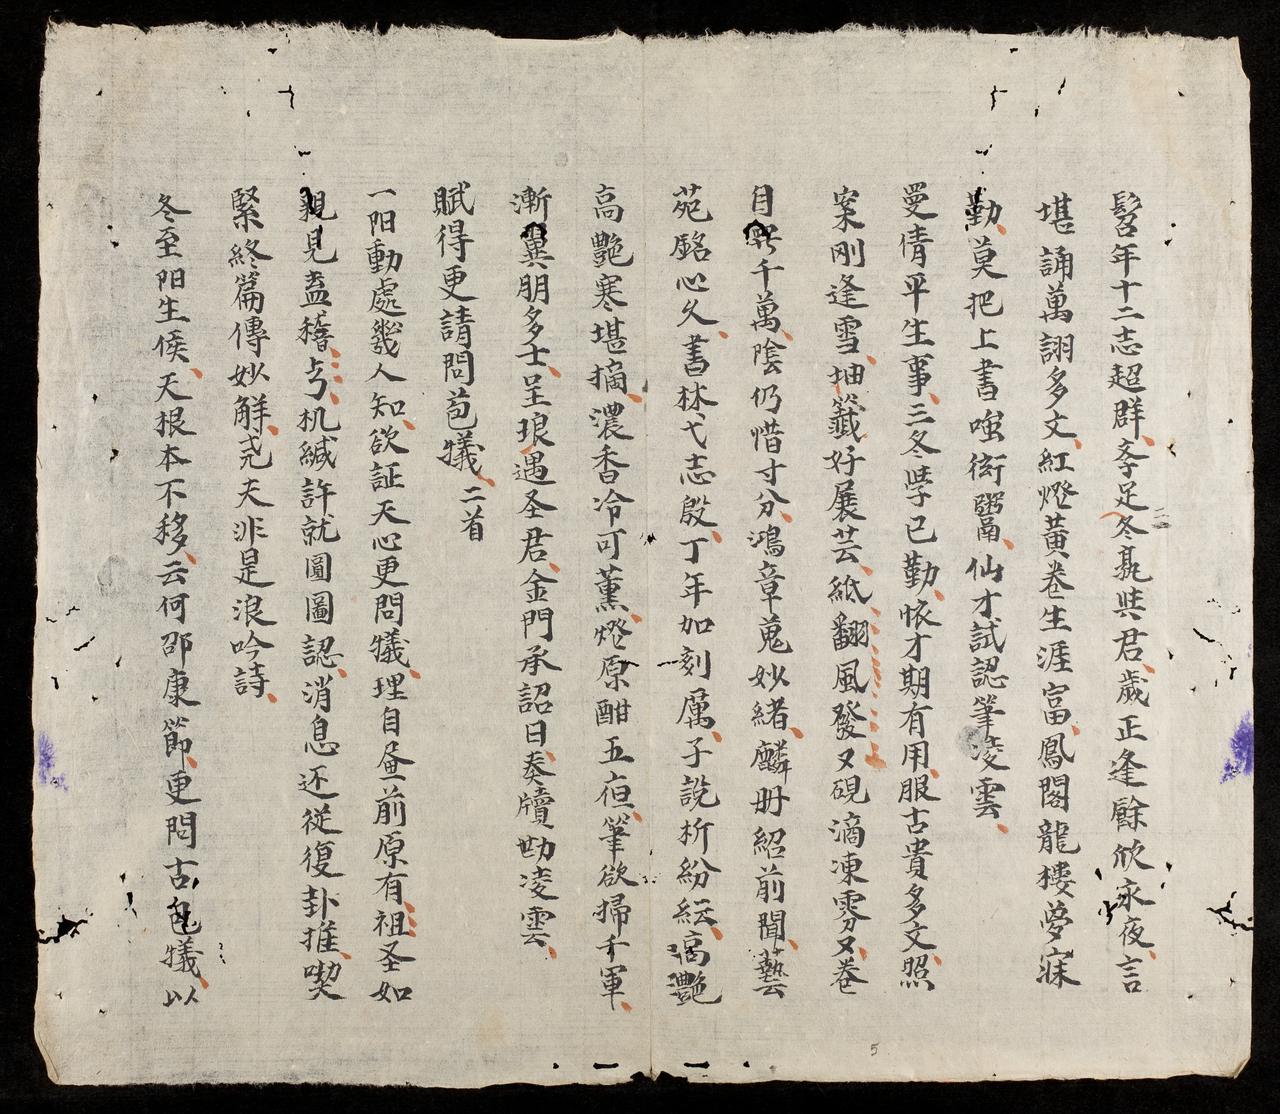 髫年十二志超群斈足冬孰共君歲正逢餘欣永夜言
堪誦萬詡多文紅燈黃卷生涯富鳳閣龍樓夢寐
勤莫把上書嗤衒鬻仙才試認筆凌雲
曼倩平生事三冬斈已勤恢才期有用服古貴多文照
案剛逢雪抽籤好展芸紙翻風發又硯滴凍雰又卷
目興千萬陰仍惜寸分鴻章蒐妙緒麟册紹前聞藝
苑銘心久書林弋志殷丁年加刻厲子說析紛紜高艷
高艷寒堪摘濃香冷可薰燈原酣五夜筆欲掃千軍
漸翼朋多士呈琅遇圣君金門承詔日奏牘勘凌雲
賦得更請問苞犧 二首
一阳動處幾人知欲証天心更問犧埋自𦘕前原有祖圣如
親見盍稽 机緘許就圓圖認消息还従復卦推喫
緊終篇傳妙觧尭夫非是浪吟詩
冬至阳生候天根本不移云何邵康節更問古包犧以
二
5